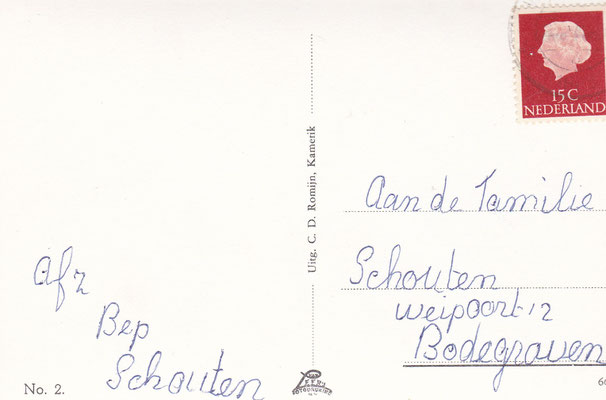 15 C
NEDERLAND
Uitg. C. D. Romijn, Kamerik
Aan de Familie
Schouten
Weipoort 12
Bodegraven
Afz
Bep
Schouten
No. 2.